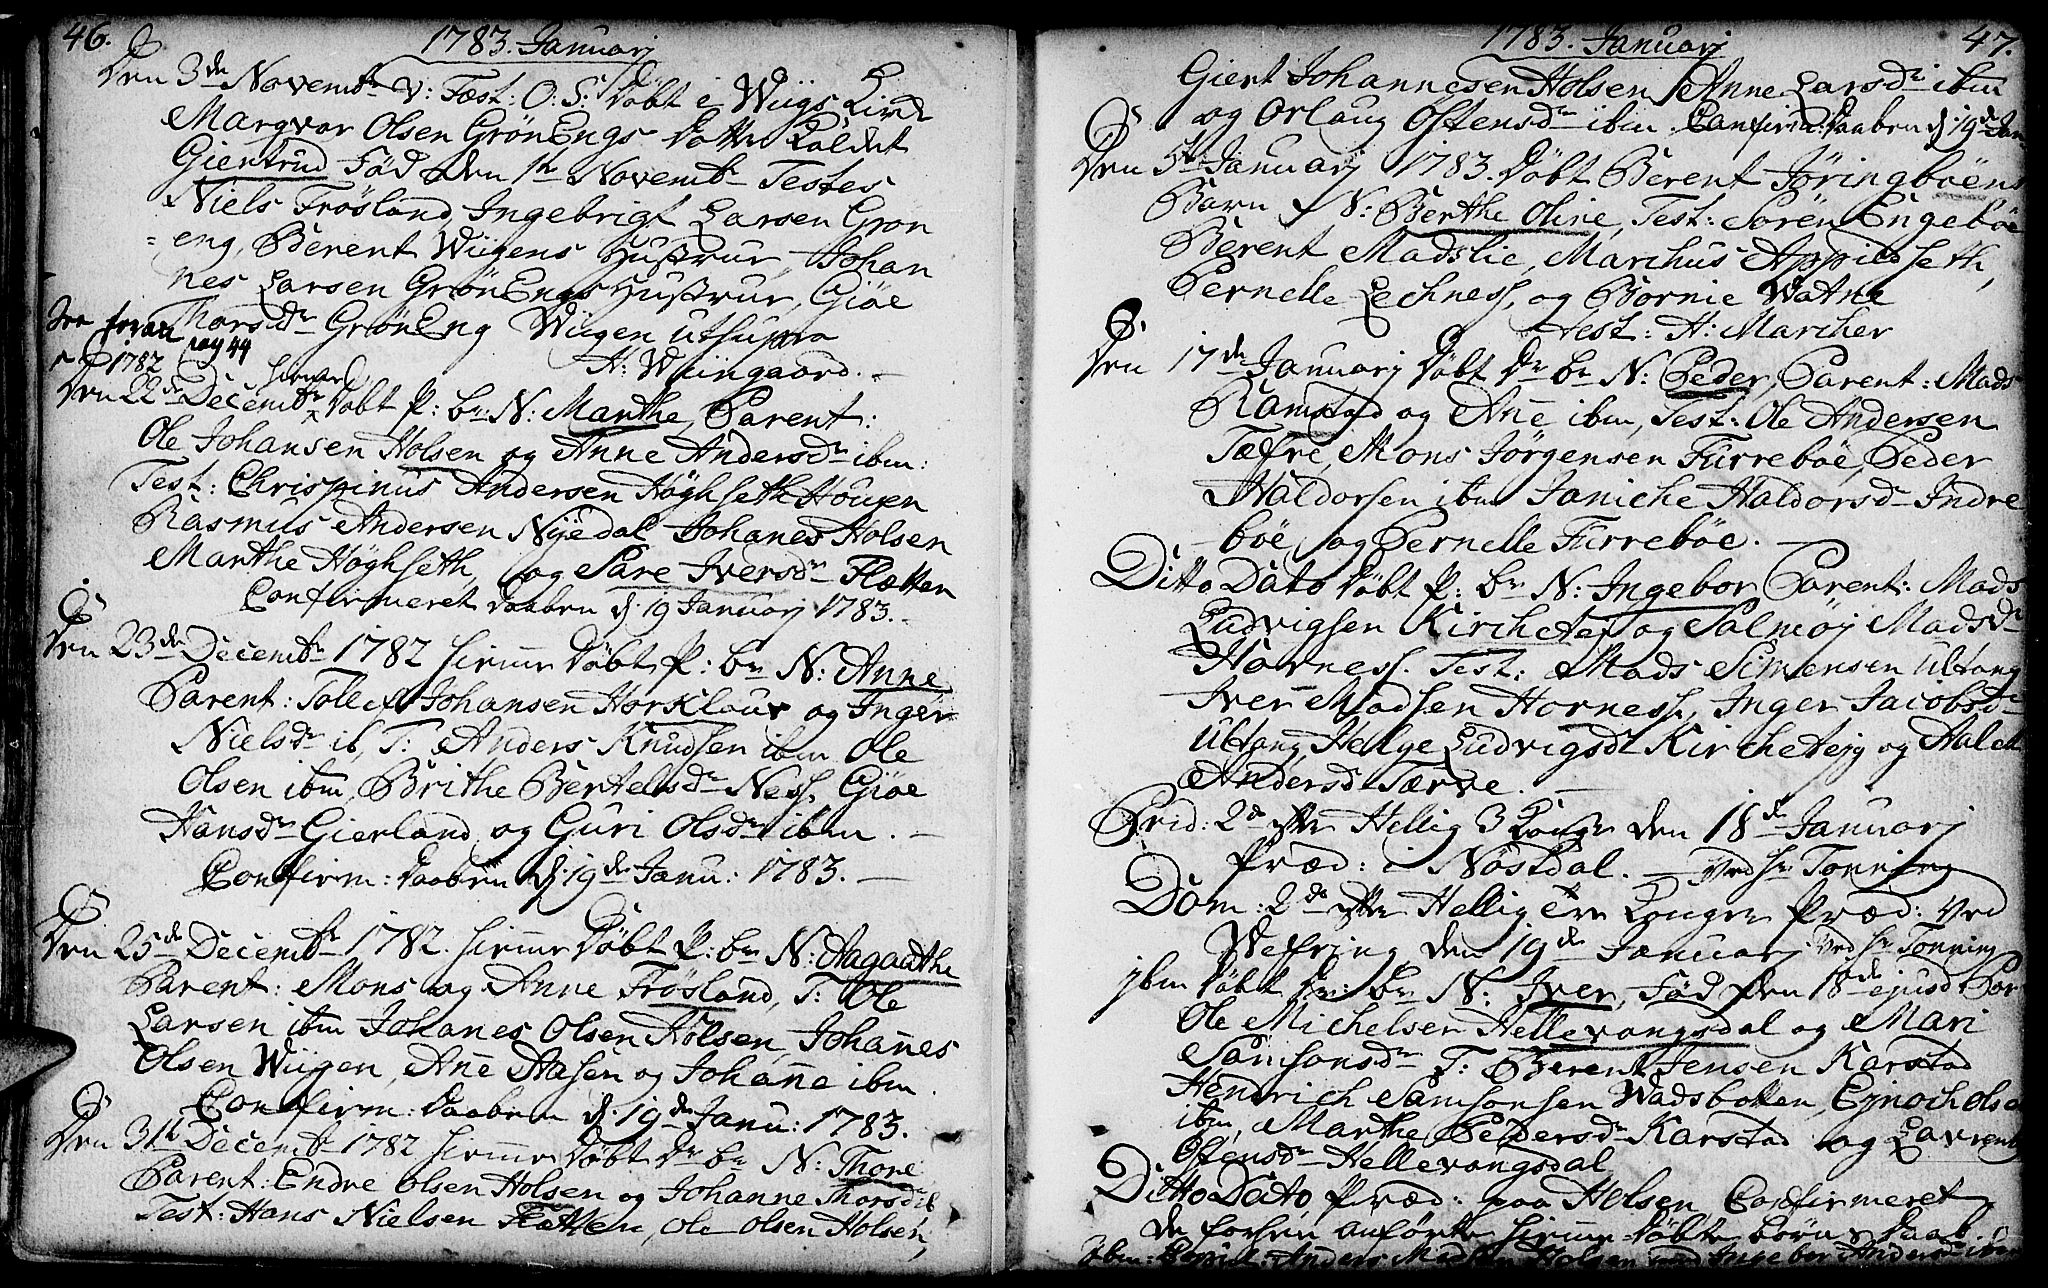 46.
1783. Januarj
Den 3de Novembr V: Fæst: O: S: Døbt i Wiigs Kirke
Margvar Olsen GrönEngs Datter Kaldet
Giertrud Fød den 1te Novembr Testes
Niels Frösland, Ingebrigt Larsen Grön
=eng, Berent Wiigens Hustrue, Johan
nes Larsen GrönEngs Hustrue, Giøe
Thorsdr GrönEng Wiigen ut supra
H: Wiingaard. —
See foran
pag 44
1782
Den 22de Decembr hiemme Døbt P: br N: Marthe, Parent:
Ole Johansen Holsen og Anne Andersdr ibm:
Test: Chrispinus Andersen Höghseth Houen
Rasmus Andersen Nÿedal Johanes Holsen
Marthe Höghseth, og Sare Iversdr Flætten
Confirmeret Daaben d: 19 Januarj 1783.
Den 23de Decembr 1782 hiemme Døbt P: br N: Anne
Parent: Tollef Johansen Horsklaur og Inger
Nielsdr ib, T: Anders Knudsen ibm Ole
Olsen ibm, Brithe Bertelsdr Ness, Giøe
Hansdr Gierland og Guri Olsdr ibm. —
Confirm: Daaben d: 19de Janu: 1783. —
Den 25de Decembr 1782. hiemme Døbt P: br N: Aagaathe
Parent: Mons og Anne Frösland, T: Ole
Larsen ibm Johanes Olsen Holsen, Johañes
Olsen Wiigen, Añe Aasen og Johañe ibm.
Confirm: Daaben d: 19de Janu: 1783.
Den 31te Decembr 1782 hiemme Døbt Dr br N: Thore
Parent: Endre Olsen Holsen og Johanne Thorsd ib
Test: Hans Nielsen Flætten, Ole Olsen Holsen,
1783. Januarj
47.
Giert Johannesen Holsen, Anne Larsdr ibm
og Orlaug Ostensdr ibm. Confirm: Daaben d: 19de Jan
Den 5te Januarj 1783. Døbt Berent Jöringböens
Barn N: Berthe Oline, Test: Sören Engeböe
Berent Madslie, Marchus Appildseth,
Pernelle Lechness, og Bornie Watne
test: H: Marcher
Den 17de Januarj Døbt Dr br N: Peder, Parent: Mads
Ramstad og Añe ibm, Test: Ole Andersen
Tæfre, Mons Jörgensen Furreböe, Peder
Haldorsen ibm Janiche Haldorsd Indre
böe og Pernelle Furreböe. —
Ditto Dato Døbt P: br N: Ingebor Parent: Mads
Ludvigsen Kirchetej og Salmöj Madsdr
Horness. Test: Mads Simensen Ultang
Iver Madsen Horness, Inger Jacobsdr
Ultang, Helge Ludvigsdr Kircheteig og
Andersd Tærve. —
Prid: 2d Hellig 3 Konger den 18de Januarj
Præd: i Nöstdal. — Ved Hr Tonning
Dom: 2de Hellig tre Konger Præd: Ved
Wefring, den 19de Januarj Ved Hr Tonning
Ibm Døbt Dr: br N: Iver, Fød den 18de ejusd Par
Ole Michelsen Hellevangsdal og Mari
Samsonsdr T: Berent Jensen Karstad
Hendrich Samsonsen Wadsbotten, Ejnoch Olsen
ibm, Marthe Pedersdr Karstad og
Ostensdr Hellevangsdal
Ditto Dato Præd: paa Holsen, Confirmeret
de forhen anförte hiemme Døbte börns Daab.
Ibm: Anders Madsen Holsen med Ingebor Andersdr ibm